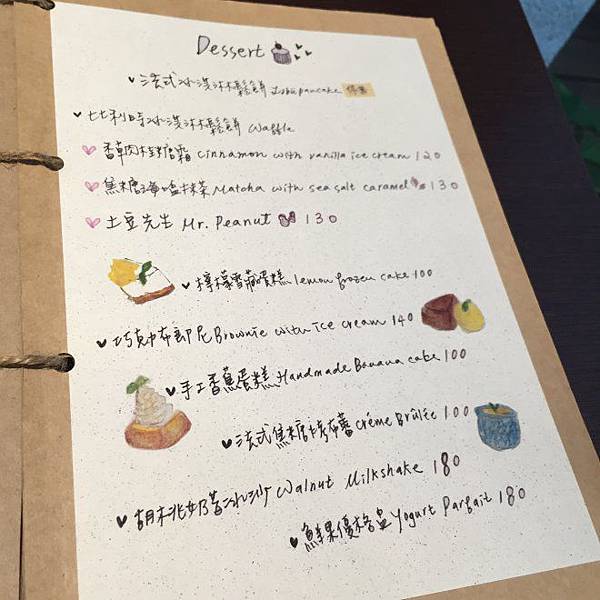 Dessert
法式冰淇淋鬆餅 pancake
比利時冰淇淋鬆餅 Waffle
香草肉桂糖霜 cinnamon with vanilla ice cream 120
焦糖海鹽抹茶 Matcha with sea salt caramel 130
土豆先生 Mr. Peanut 130
檸檬雪藏蛋糕 lemon frozen cake 100
巧克力布朗尼 Brownie with ice cream 140
手工香蕉蛋糕 Handmade Banana cake 100
法式焦糖烤布蕾 créme Brûlée 100
胡桃奶昔冰沙 Walnut Milkshake 180
鮮果優格盅 Yogurt Parfait 180